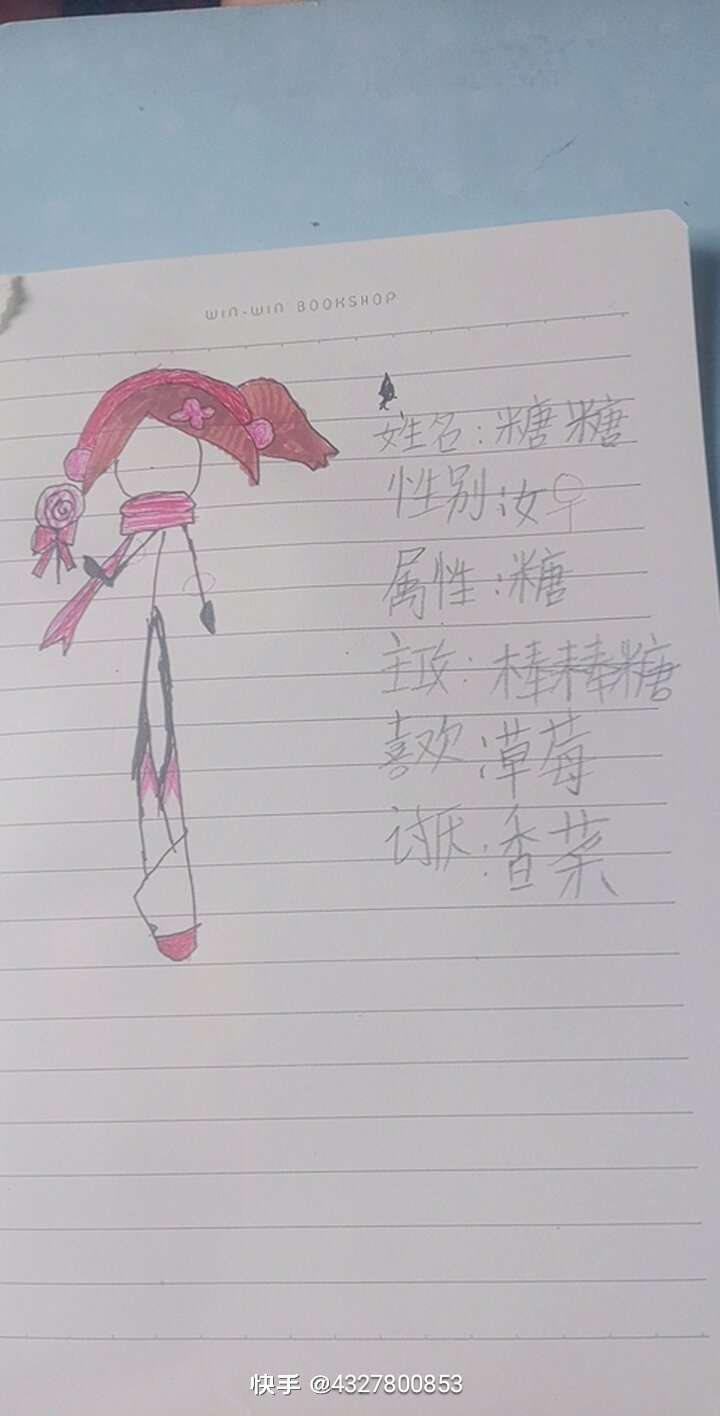 WIN-WIN BOOKSHOP
姓名:糖糖
性别:汝♀
属性:糖
主攻:棒棒糖
喜欢:草莓
讨厌:香菜
快手 @4327800853